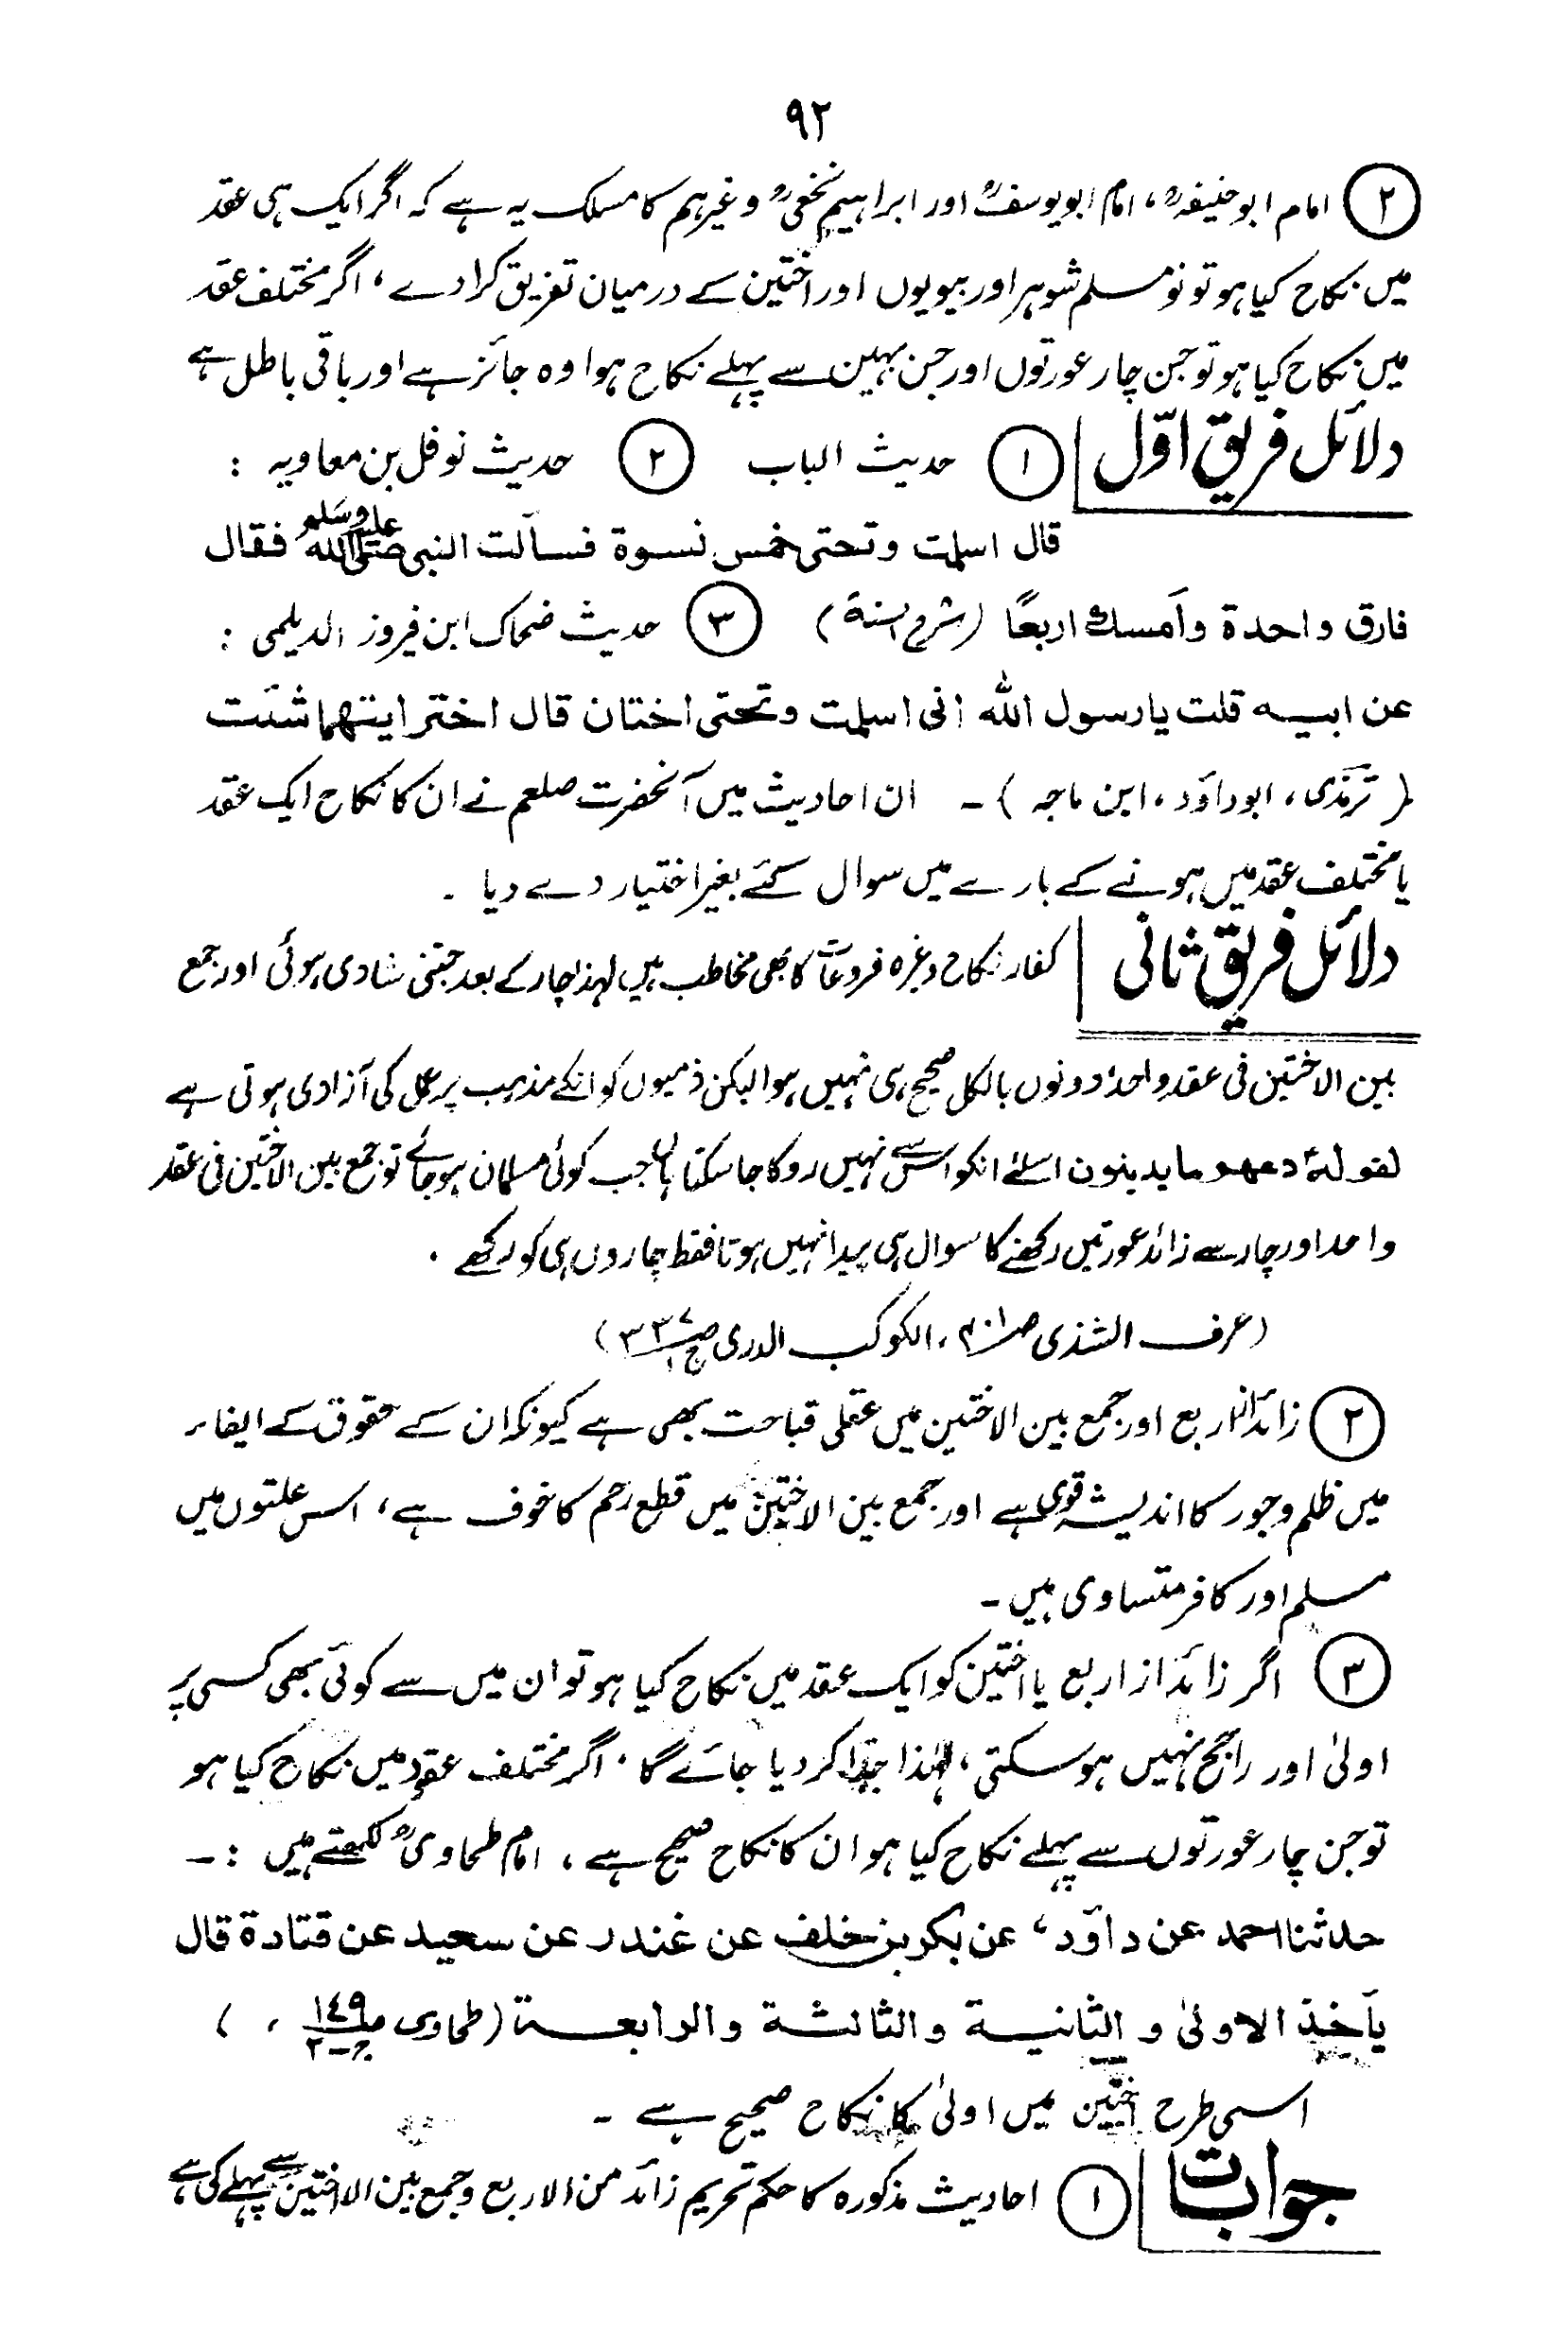 ۹۲
② امام ابوحنیفہؒ، امام ابویوسفؒ اور ابراہیم نخعیؒ وغیرہم کا مسلک یہ ہے کہ اگر ایک ہی عقد
میں نکاح کیا ہو تو نو مسلم شوہر اور بیویوں اور اختین کے درمیان تفریق کرا دے، اگر مختلف عقد
میں نکاح کیا ہو تو جن چار عورتوں اور جن بہین سے پہلے نکاح ہوا وہ جائز ہے اور باقی باطل ہے
دلائل فریق اوّل ① حدیث الباب ② حدیث نوفل بن معاویہ :
قال اسلمت وتحتی خمس نسوة فسألت النبی صلی اللہ علیہ وسلم فقال
فارق واحدة وأمسك اربعًا (شرح السنة) ③ حدیث ضحاک ابن فروز الدیلمی :
عن ابیه قلت یا رسول الله انی اسلمت وتحتی اختان قال اختر ایتهما شئت
(ترمذی، ابوداؤد، ابن ماجہ) ۔ ان احادیث میں آنحضرت صلعم نے ان کا نکاح ایک عقد
یا مختلف عقد میں ہونے کے بارے میں سوال کئے بغیر اختیار دے دیا ۔
دلائل فریق ثانی کفار نکاح وغیرہ فروعات کا بھی مخاطب ہیں لہذا چار کے بعد جتنی شادی ہوئی اور جمع
بین الاختین فی عقد واحد دونوں بالکل صحیح ہی نہیں ہوا لیکن ذمیوں کو انکے مذہب پر عمل کی آزادی ہوتی ہے
لقوله دعهم ما یدینون اسلئے انکو اس سے نہیں روکا جا سکتا ہاں جب کوئی مسلمان ہو جائے تو جمع بین الاختین فی عقد
واحد اور چار سے زائد عورتیں رکھنے کا سوال ہی پیدا نہیں ہوتا فقط چاروں ہی کو رکھے ۔
(عرف الشذی ص، الکوکب الدری ص ۳۳۷ ج۱)
② زائد از اربع اور جمع بین الاختین میں عقلی قباحت بھی ہے کیونکہ ان کے حقوق کے ایفاء
میں ظلم وجور کا اندیشہ قوی ہے اور جمع بین الاختین میں قطع رحم کا خوف ہے، اس علتوں میں
مسلم اور کافر متساوی ہیں ۔
③ اگر زائد از اربع یا اختین کو ایک عقد میں نکاح کیا ہو تو ان میں سے کوئی بھی کسی پر
اولیٰ اور راجح نہیں ہو سکتی، لہٰذا جدا کر دیا جائے گا ۔ اگر مختلف عقود میں نکاح کیا ہو
تو جن چار عورتوں سے پہلے نکاح کیا ہو ان کا نکاح صحیح ہے، امام طحاویؒ لکھتے ہیں :۔
حدثنا احمد عن داؤد، عن بکر بن خلف عن غندر عن سعید عن قتادة قال
یأخذ الاولیٰ و الثانیة والثالثة والرابعة (طحاوی ص۱۴۹ ج-۲ ، )
اسی طرح اختین میں اولیٰ کا نکاح صحیح ہے ۔
جوابات ① احادیث مذکورہ کا حکم تحریم زائد من الاربع وجمع بین الاختین سے پہلے کی ہے